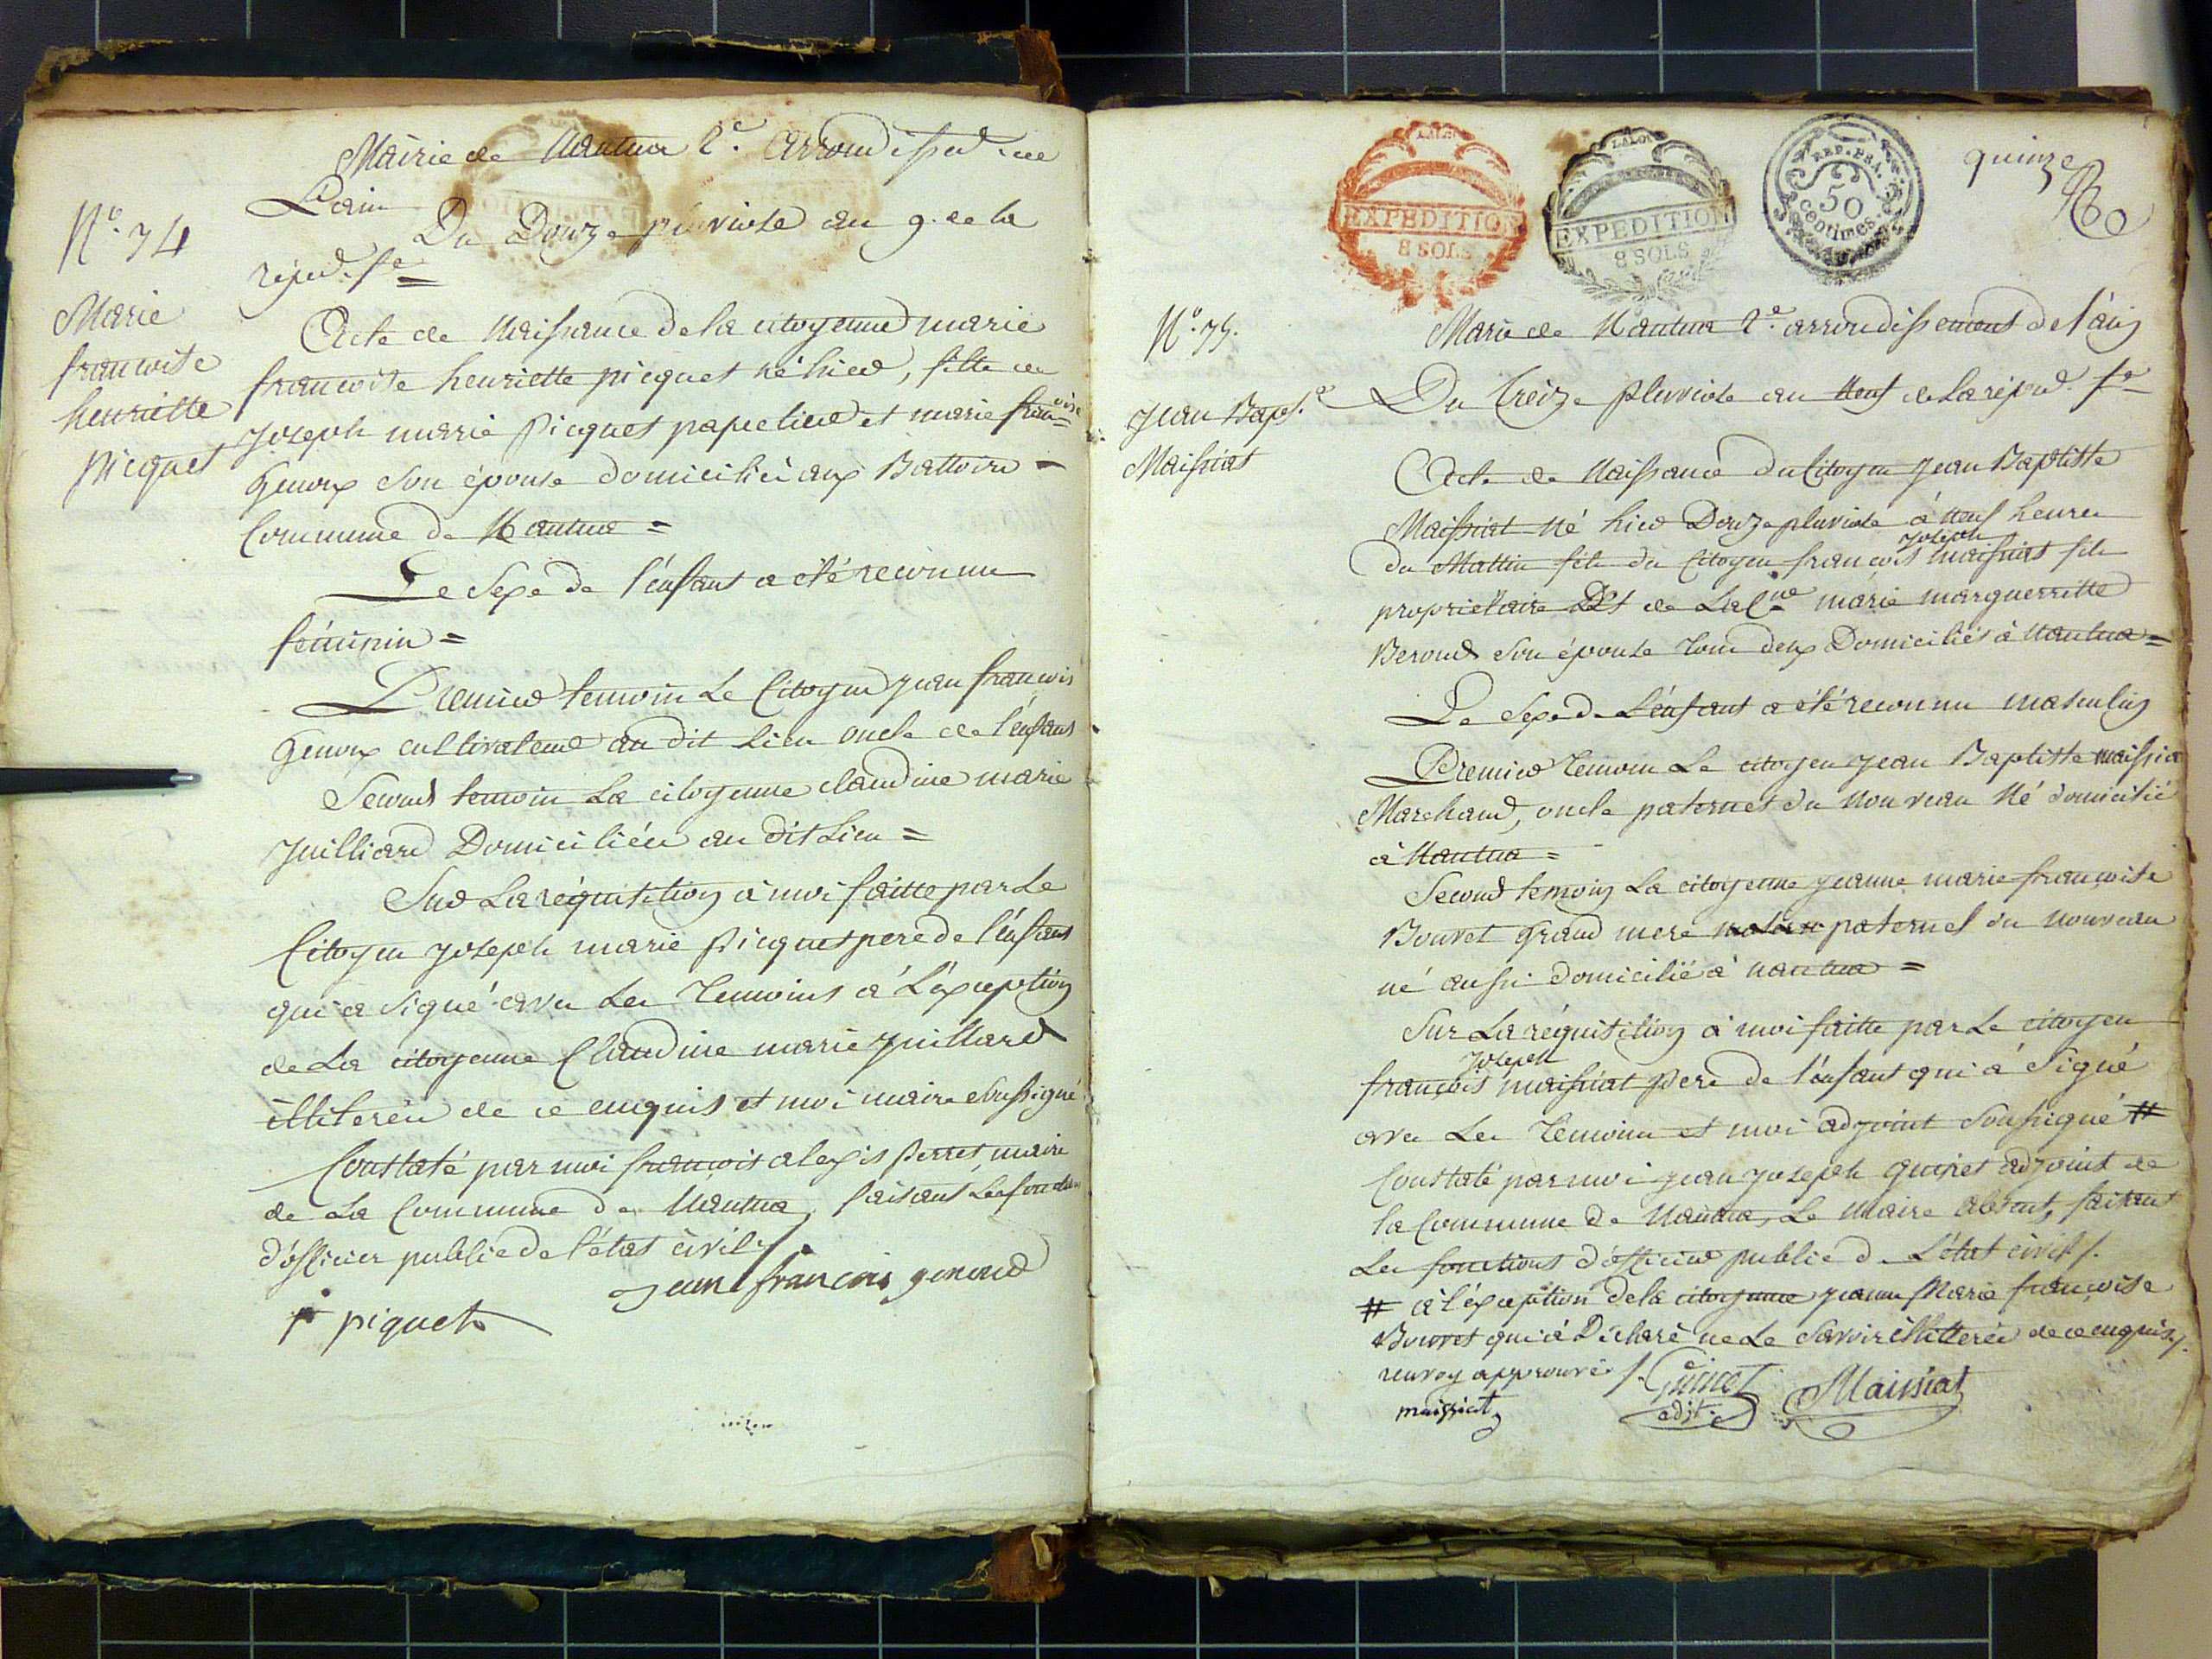 Mairie de Nantua 2.e Arrondissed. de
L'ain
N.o 74
Du Douze pluviose an 9. de la
répud. f.e =
Marie
francoise
henriette
picquet
Acte de Naissance de la citoyenne marie
francoise henriette picquet né hier, fille de
joseph marie Picquet papetier et marie francoise
Genoux son épouse domicilié aux Battoirs =
Commune de Nantua =
Le Sexe de l'énfant a été reconnu
féminin =
Premier temoin Le Citoyen jean francois
Genoux cultivateur au dit Lieu oncle de l'énfant
Second temoin La citoyenne claudine marie
juilliard Domiciliée au dit Lieu =
Sur La réquisition à moi faitte par Le
Citoyen joseph marie Picquet pere de l'énfant
qui a signé avec Les Temoins à L'éxception
de La citoyenne Claudine marie juillard
illiterée de ce enquis et moi maire soussigné
Constaté par moi francois alexis Perret, maire
de La Commune de Nantua, faisant Les fonctions
d'officier public de l'état civil ./.
jean francois genoud
p piquet
LALOI
EXPEDITION
8 SOLS
LALOI
EXPEDITION
8 SOLS
REP. FRA.
50
centimes.
quinze
N.o 75.
Jean Bapt.e
Maissiat
Marie de Nantua 2.e arrondissement de l'ain
Du Treize pluviose an Neuf de La répud. f.e
Acte de Naissance du Citoyen Jean Baptiste
Maissiat Né hier Douze pluviose à Neuf heures
du Mattin fils du Citoyen francois joseph maissiat fils
propriétaire Et de La C.ne marie marguerritte
Beroud son épouse tous deux Domiciliés à Nantua =
Le Sexe de L'énfant a été reconnu masculin
Premier Temoin Le citoyen Jean Baptiste maissia
Marchand, oncle paternel du nouveau Né domicilié
à Nantua =
Second temoin La citoyenne jeanne marie francoise
Bouvet Grand mere matern paternel du nouveau
né aussi domicilié à nantua =
Sur La réquisition à moi faitte par Le citoyen
françois joseph maissiat Pere de l'énfant qui à Signé
avec Les Temoins et moi adjoint Soussigné #
Constaté par moi jean joseph Guinet adjoint de
la Commune de Nantua, Le Maire absent, faisant
Les fonctions d'officier public de L'état civil ./.
# à l'éxception de la citoyenne jeanne Marie françoise
Bouvet qui à Déclaré ne Le Savoir illitterée de ce enquis ./.
renvoy approuvé ./.
Guinet
adjt.
Maissiat
maissiat